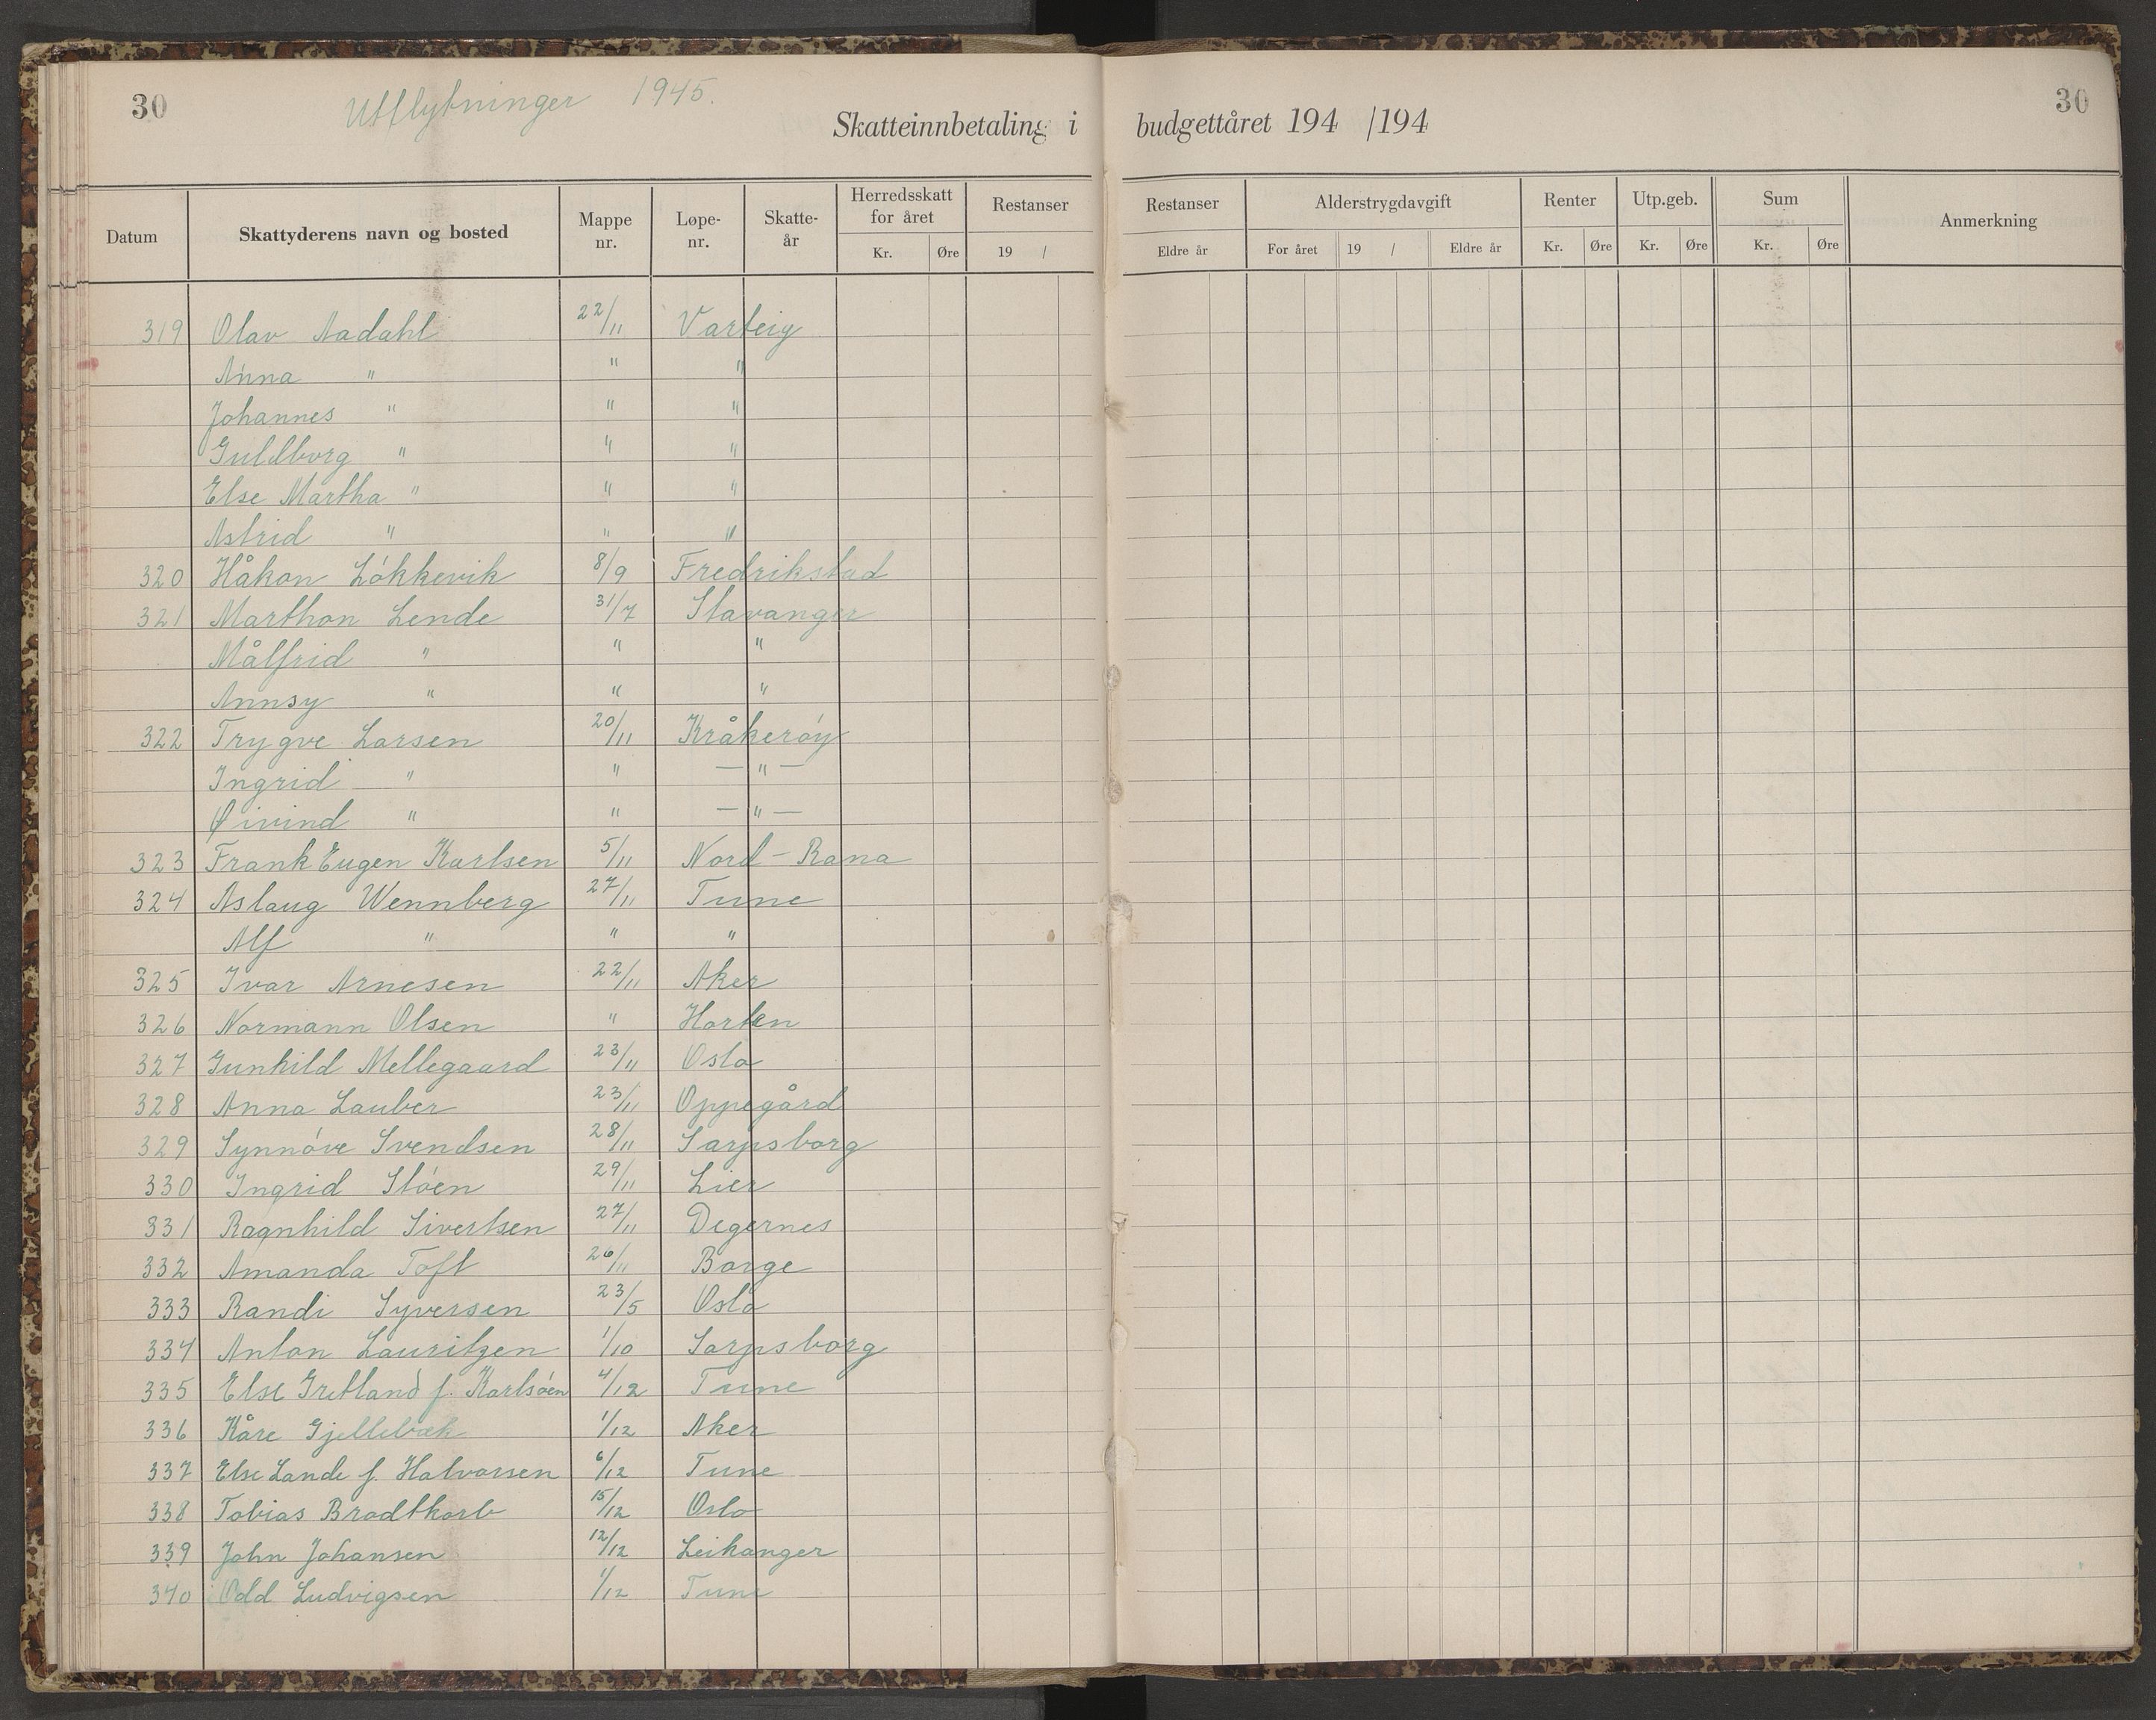 30 Utflytninger 1945. 30
Skatteinnbetaling i budgettåret 194 /194
Datum Skattyderens navn og bosted Mappe nr. Løpe-nr. Skatte-år Herredsskatt for året Kr. Øre Restanser 19 / Restanser Eldre år Alderstrygdavgift For året 19 / Eldre år Renter Kr. Øre Utp.geb. Kr. Øre Sum Kr. Øre Anmerkning
319 Olav Aadahl 22/11 Varteig
Anna " " "
Johannes " " "
Guldborg " " "
Else Martha " " "
Astrid " " "
320 Håkon Løkkevik 8/9 Fredrikstad
321 Marthon Lende 31/7 Stavanger
Målfrid " " "
Annsy " " "
322 Trygve Larsen 20/11 Kråkerøy
Ingrid " " — " —
Øivind " " — " —
323 Frank Eugen Karlsen 5/11 Nord-Rana
324 Aslaug Wennberg 27/11 Tune
Alf " " "
325 Ivar Arnesen 22/11 Aker
326 Normann Olsen " Horten
327 Gunhild Mellegaard 23/11 Oslo
328 Anna Lauber 23/11 Oppegård
329 Synnøve Svendsen 28/11 Sarpsborg
330 Ingrid Støen 29/11 Lier
331 Ragnhild Sivertsen 27/11 Degernes
332 Amanda Toft 26/11 Borge
333 Randi Syversen 23/5 Oslo
334 Anton Lauritzen 1/10 Sarpsborg
335 Else Gretland f. Karlsøen 4/12 Tune
336 Kåre Gjellebæk 1/12 Aker
337 Else Lande f. Halvorsen 6/12 Tune
338 Tobias Brodtkorb 15/12 Oslo
339 John Johansen 12/12 Leikanger
340 Odd Ludvigsen 1/12 Tune